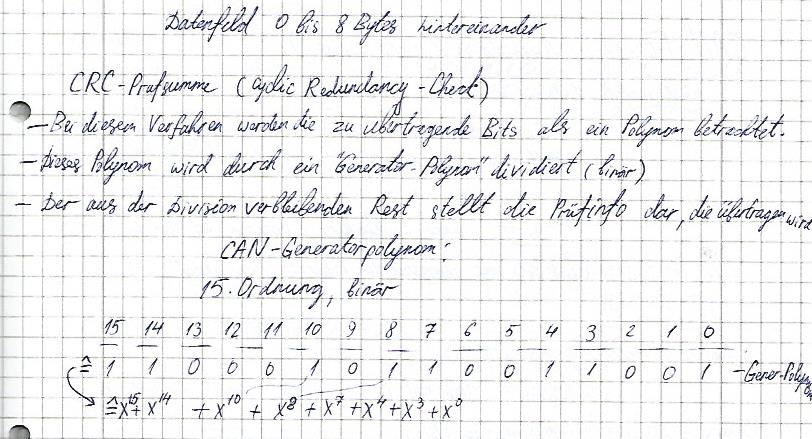 Datenfeld 0 bis 8 Bytes hintereinander
CRC-Prüfsumme (Cyclic Redundancy-Check)
- Bei diesem Verfahren werden die zu übertragende Bits als ein Polynom betrachtet.
- Dieses Polynom wird durch ein "Generator-Polynom" dividiert (binär)
- Der aus der Division verbleibenden Rest stellt die Prüfinfo dar, die übertragen wird
CAN-Generatorpolynom:
15. Ordnung, binär
15 14 13 12 11 10 9 8 7 6 5 4 3 2 1 0
≙ 1 1 0 0 0 1 0 1 1 0 0 1 1 0 0 1 - Gener-Polynom
≙ x¹⁵ + x¹⁴ + x¹⁰ + x⁸ + x⁷ + x⁴ + x³ + x⁰